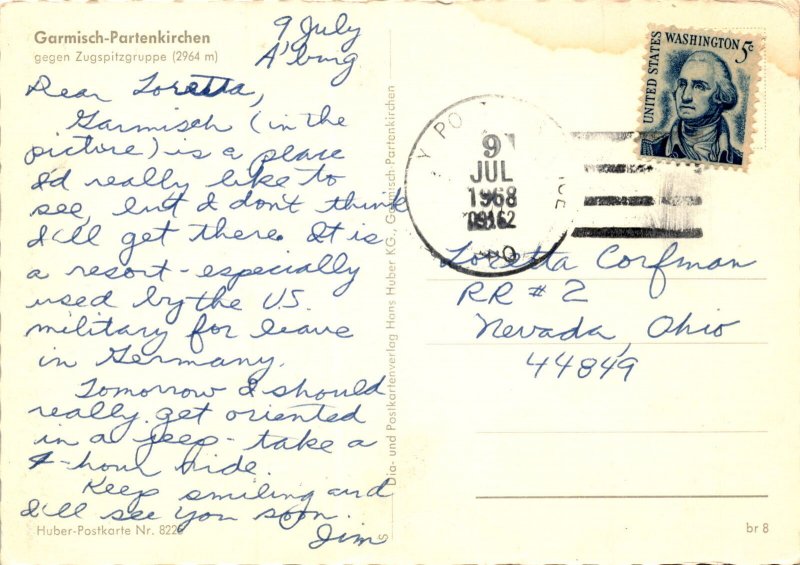 Garmisch-Partenkirchen
gegen Zugspitzgruppe (2964 m)
9 July
A'burg
Dear Loretta,
Garmisch (in the
picture) is a place
I'd really like to
see, but I don't think
I'll get there. It is
a resort - especially
used by the U.S.
military for leave
in Germany.
Tomorrow I should
really get oriented
in a jeep - take a
-hour ride.
Keep smiling and
I'll see you soon.
Jim
Huber-Postkarte Nr. 822
Dia- und Postkartenverlag Hans Huber KG., Garmisch-Partenkirchen
UNITED STATES
WASHINGTON 5c
9
JUL
1968
Loretta Corfman
RR # 2
Nevada, Ohio
44849
br 8